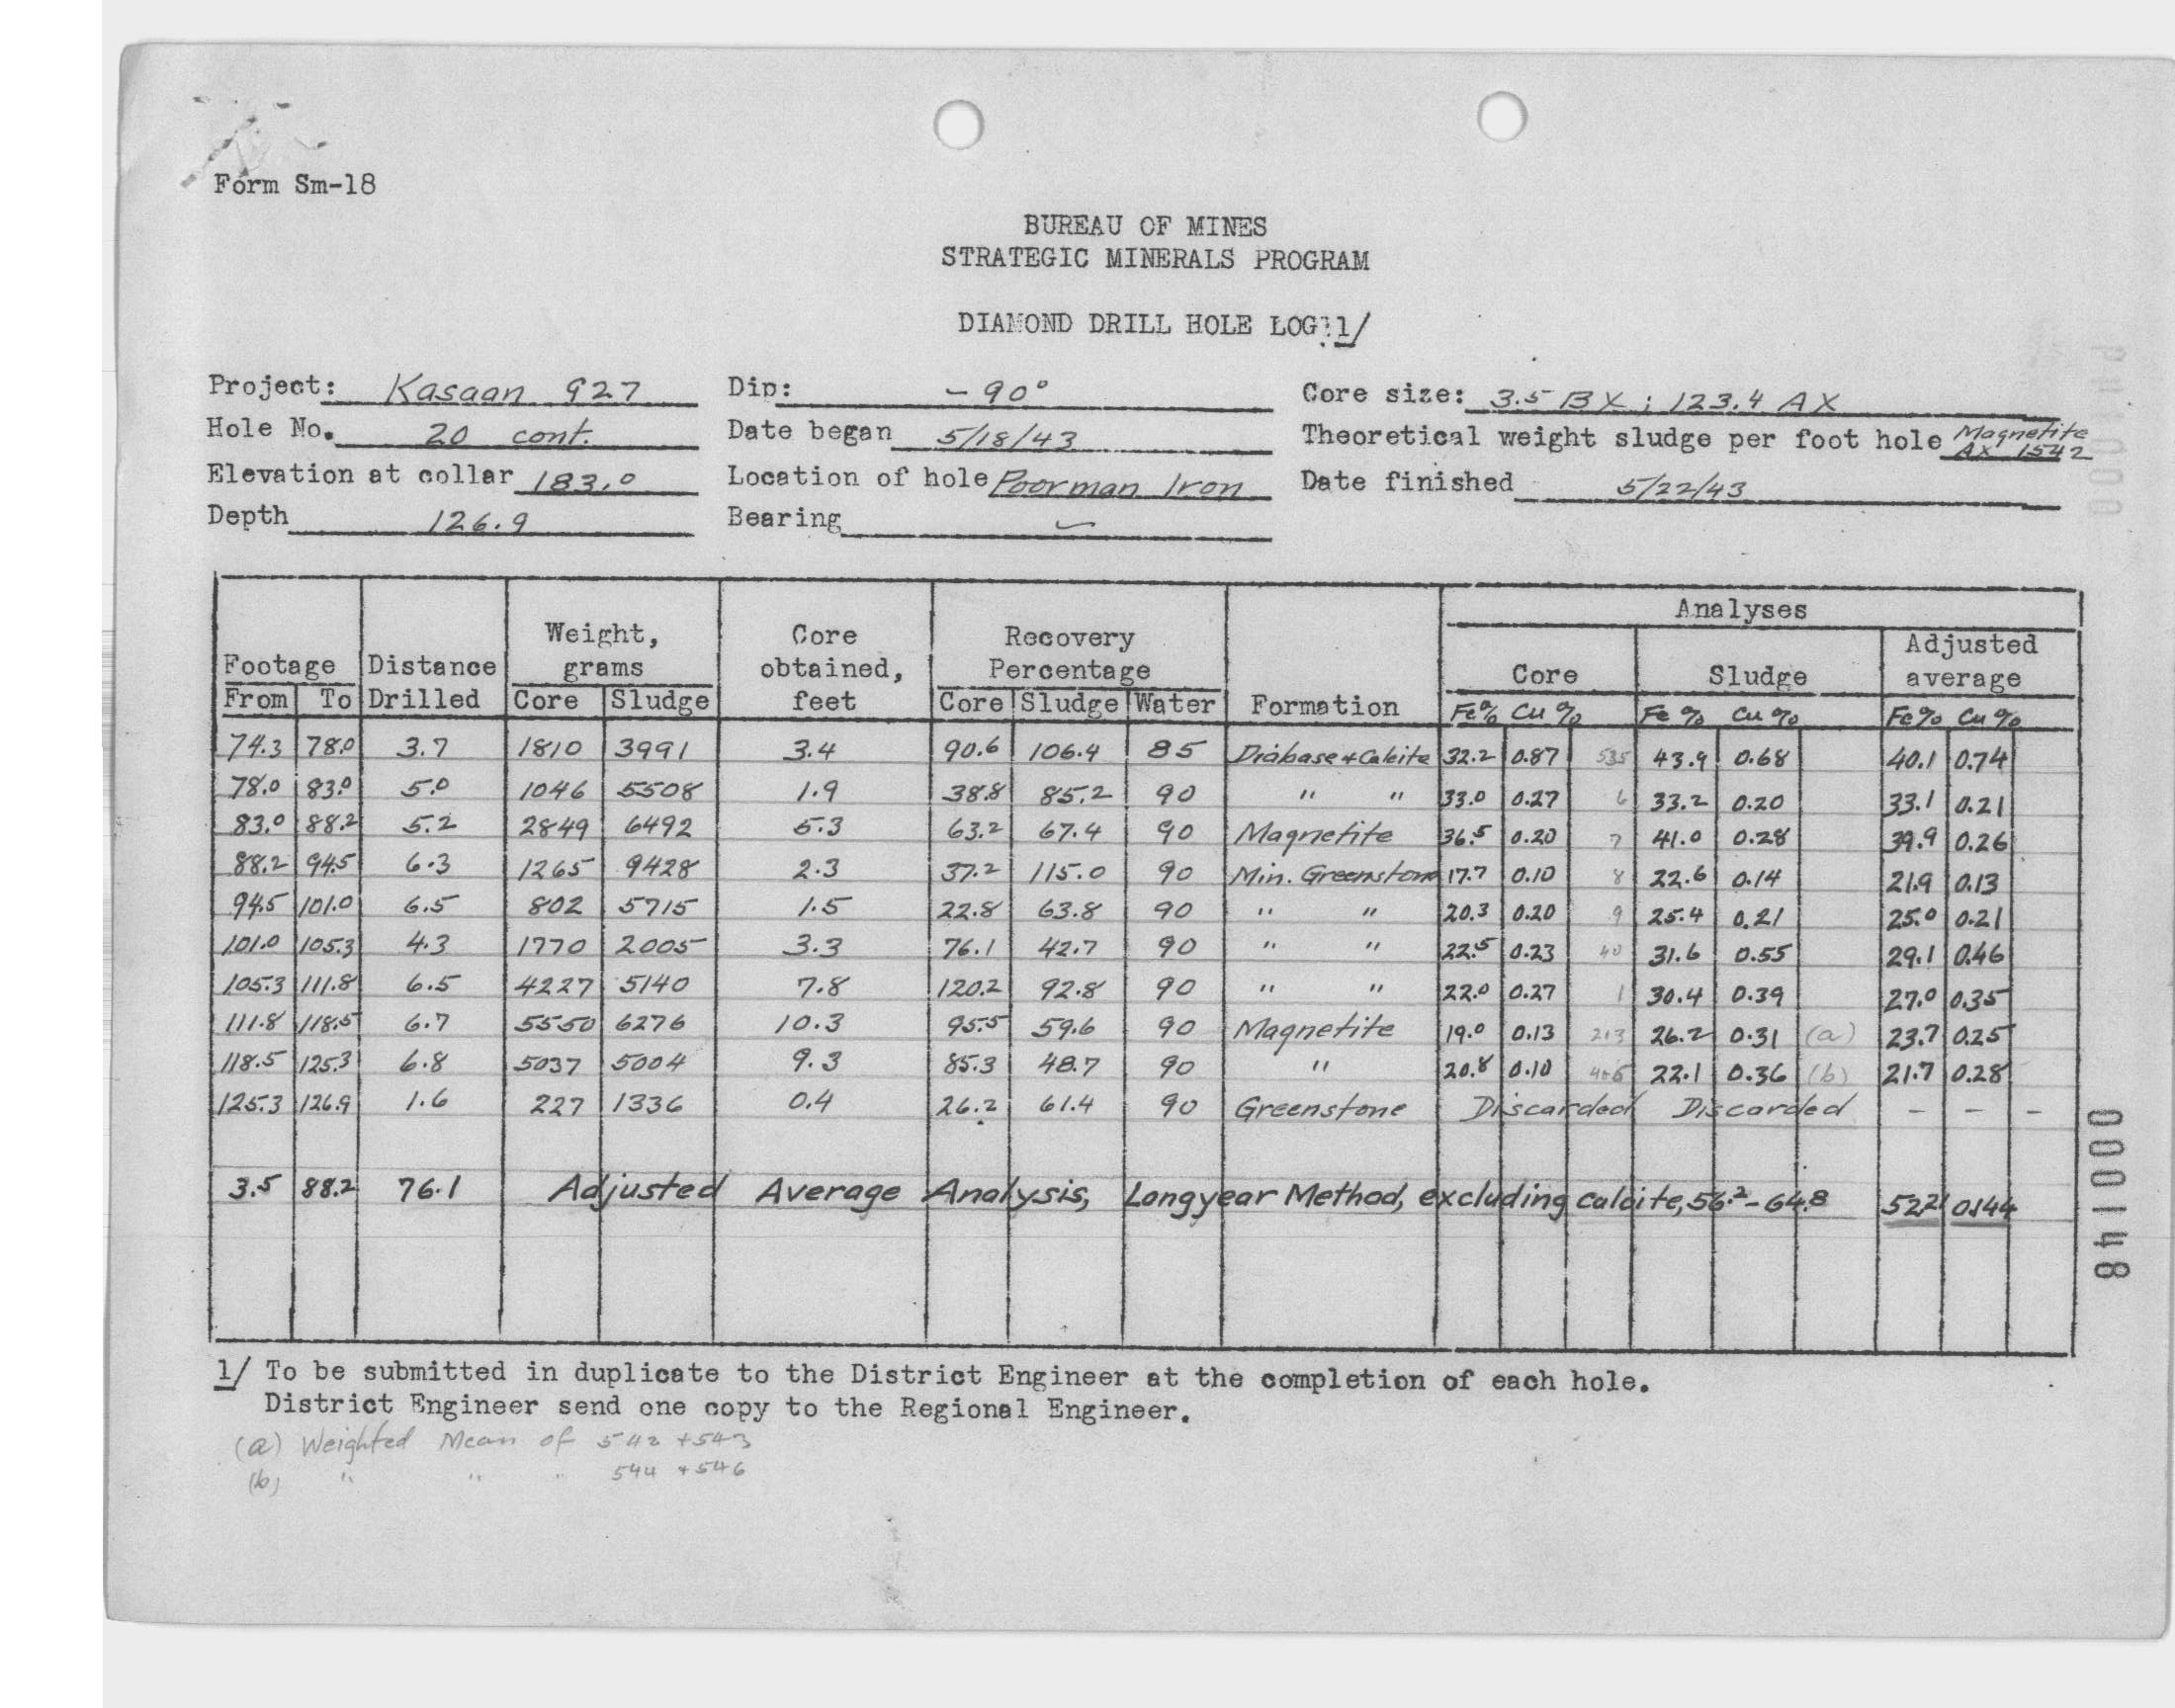 Form Sm-18
BUREAU OF MINES
STRATEGIC MINERALS PROGRAM
DIAMOND DRILL HOLE LOG 1/
Project: Kasaan 927 Dip: -90° Core size: 3.5 BX; 123.4 AX
Hole No. 20 cont. Date began 5/18/43 Theoretical weight sludge per foot hole Magnetite AX 1542
Elevation at collar 183.0 Location of hole Poorman Iron Date finished 5/22/43
Depth 126.9 Bearing
Analyses
Weight, Core Recovery Adjusted
Footage Distance grams obtained, Percentage Core Sludge average
From To Drilled Core Sludge feet Core Sludge Water Formation Fe% Cu% Fe% Cu% Fe% Cu%
74.3 78.0 3.7 1810 3991 3.4 90.6 106.4 85 Diabase + Calcite 32.2 0.87 535 43.9 0.68 40.1 0.74
78.0 83.0 5.0 1046 5508 1.9 38.8 85.2 90 " " 33.0 0.27 6 33.2 0.20 33.1 0.21
83.0 88.2 5.2 2849 6492 5.3 63.2 67.4 90 Magnetite 36.5 0.20 7 41.0 0.28 39.9 0.26
88.2 94.5 6.3 1265 9428 2.3 37.2 115.0 90 Min. Greenstone 17.7 0.10 8 22.6 0.14 21.9 0.13
94.5 101.0 6.5 802 5715 1.5 22.8 63.8 90 " " 20.3 0.20 9 25.4 0.21 25.0 0.21
101.0 105.3 4.3 1770 2005 3.3 76.1 42.7 90 " " 22.5 0.23 40 31.6 0.55 29.1 0.46
105.3 111.8 6.5 4227 5140 7.8 120.2 92.8 90 " " 22.0 0.27 1 30.4 0.39 27.0 0.35
111.8 118.5 6.7 5550 6276 10.3 95.5 59.6 90 Magnetite 19.0 0.13 26.2 0.31 (a) 23.7 0.25
118.5 125.3 6.8 5037 5004 9.3 85.3 48.7 90 " 20.8 0.10 22.1 0.36 (b) 21.7 0.28
125.3 126.9 1.6 227 1336 0.4 26.2 61.4 90 Greenstone Discarded Discarded - - -
3.5 88.2 76.1 Adjusted Average Analysis, Longyear Method, excluding calcite, 56.2-64.8 52.21 0.144
1/ To be submitted in duplicate to the District Engineer at the completion of each hole.
District Engineer send one copy to the Regional Engineer.
(a) Weighted Mean of 542 + 543
(b) " " " 544 + 546
000148